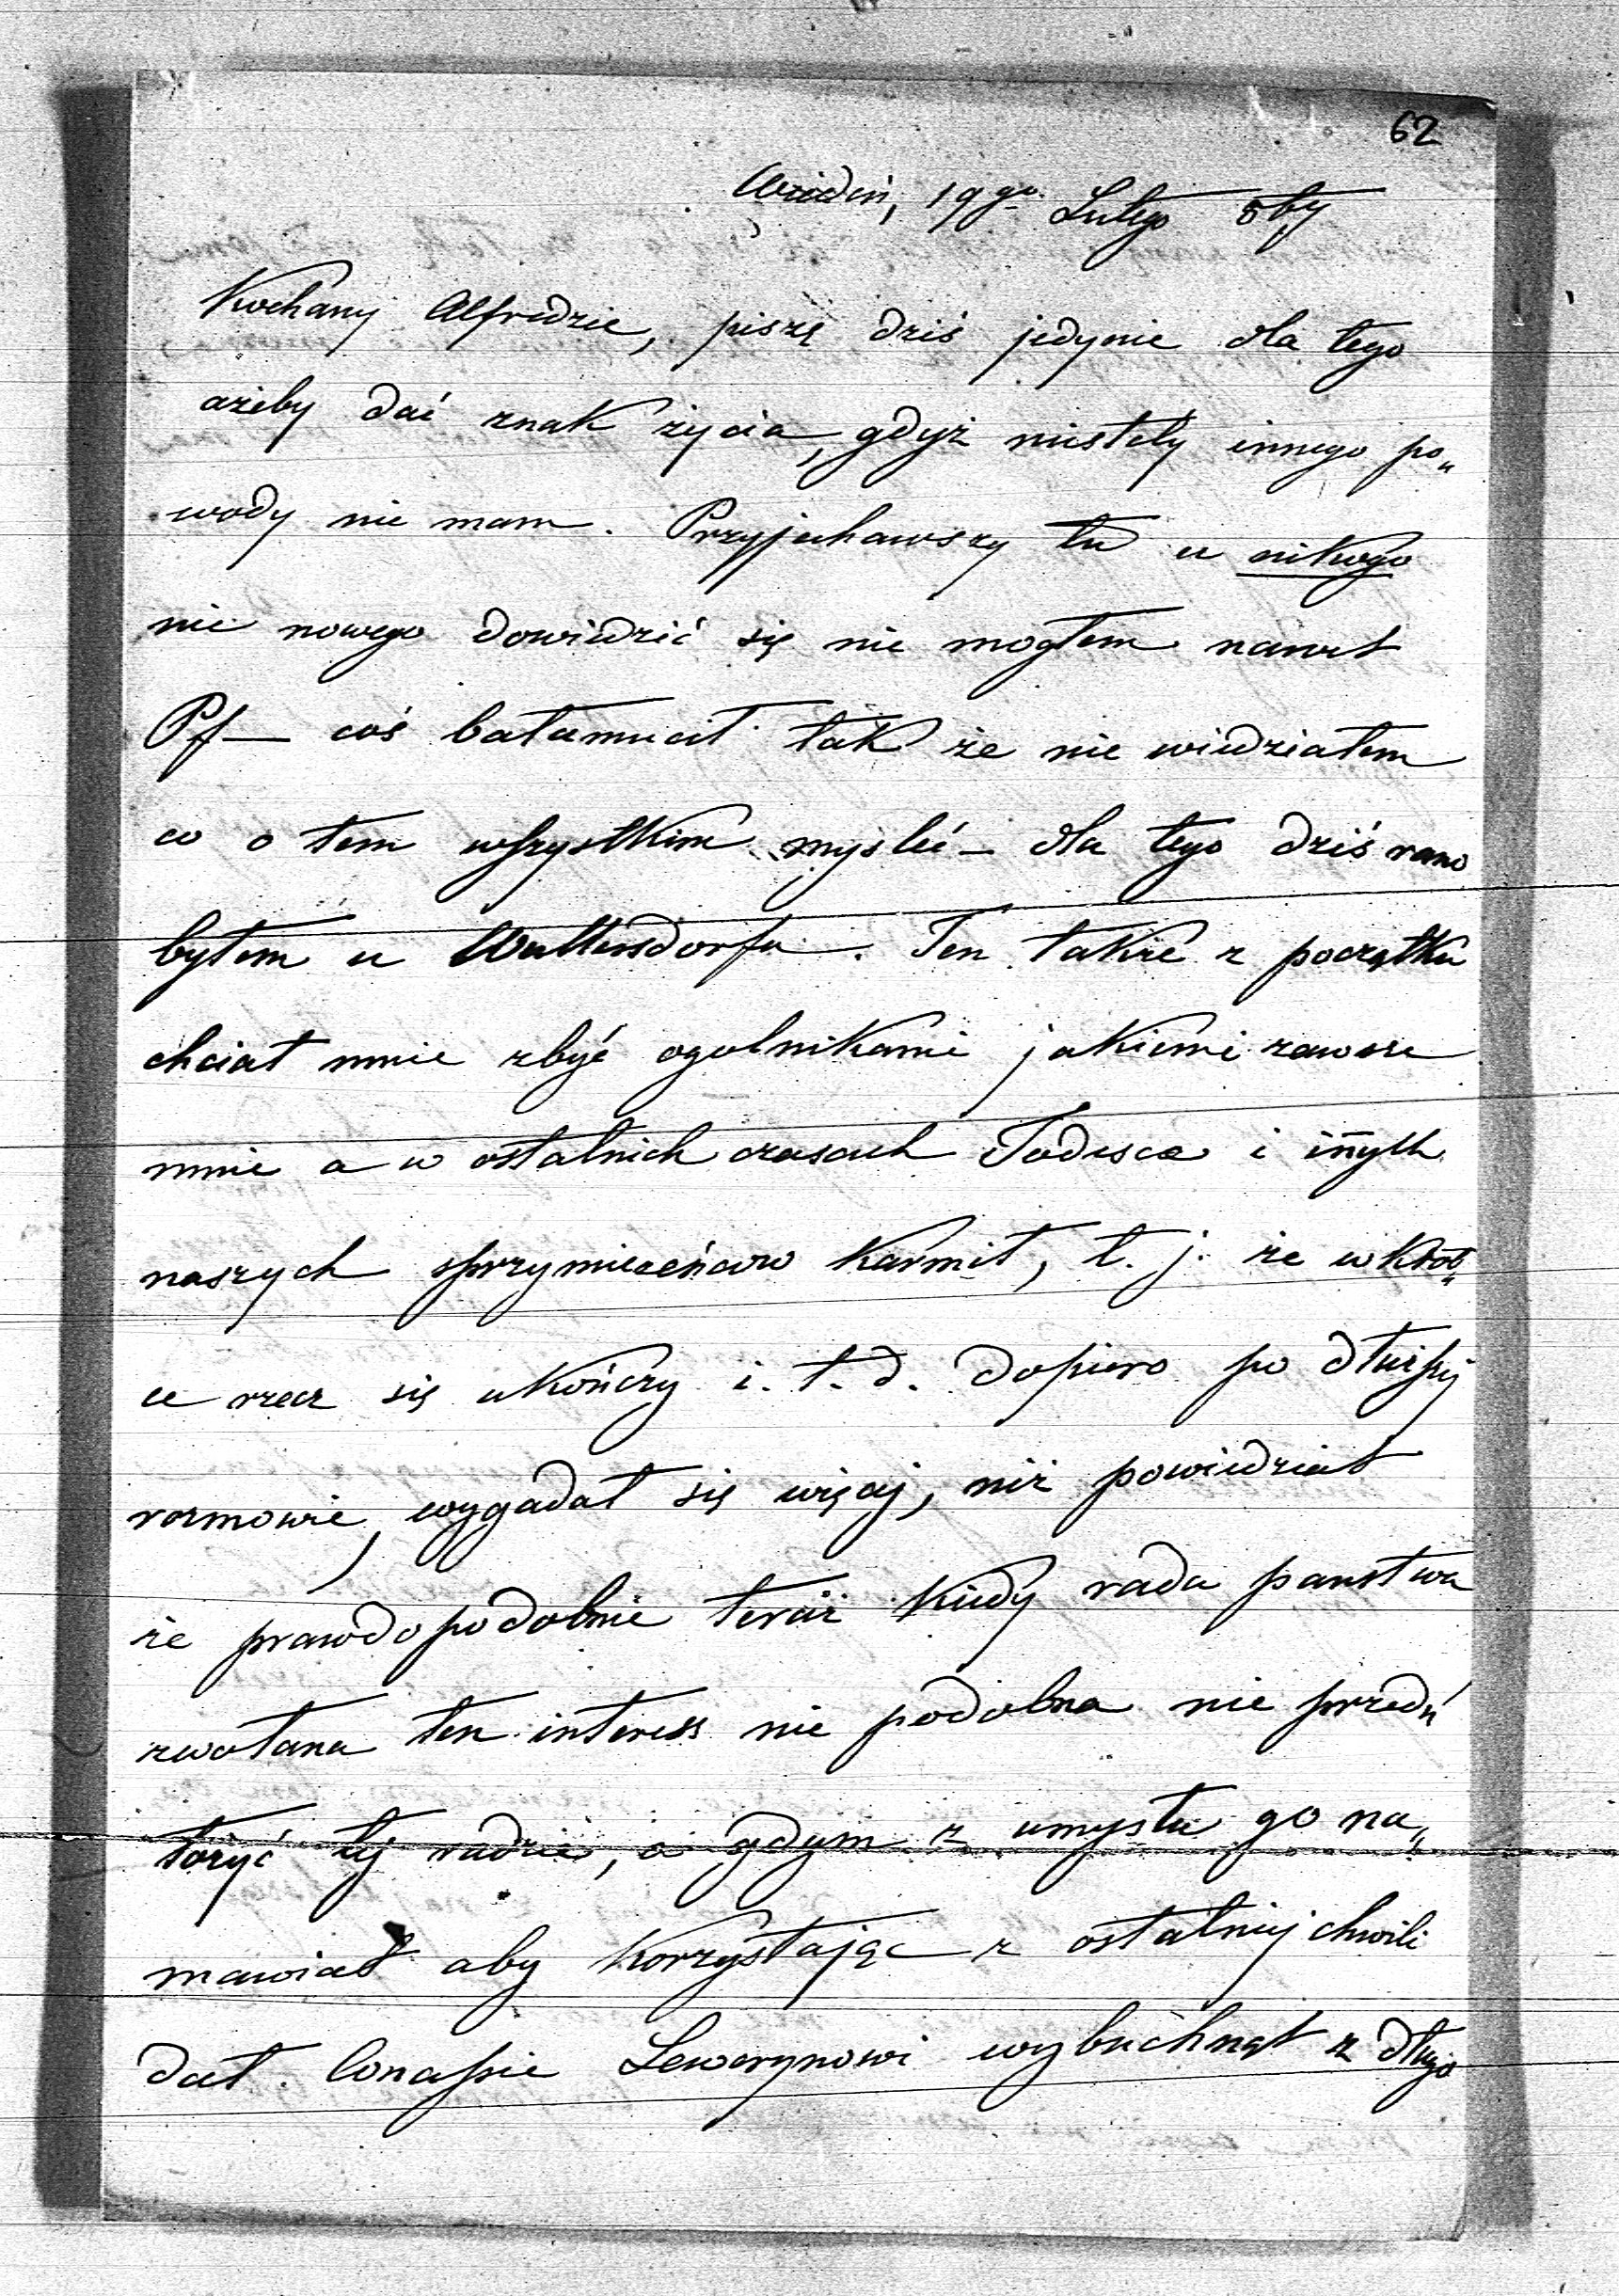 62
Wiédeń, 19go Lutego
Kochany Alfredzie, piszę dziś jedynie dla tego
ażeby dać znak życia, gdyż niestety innego po„
wody nie mam. Przyjechawszy tu u nikogo
nic nowego dowiedzić się nie mogłem nawet
Pf— coś bałamucił tak że nie wiedziałem
co o tem wszystkim mysleć — dla tego dziś rano
byłem u Waltersdorfa. Ten takze z początku
chciał mnie zbyć ogolnikami jakiemi zawsze
mnie a w ostatnich czasach Todesca i iñych
naszych sprzymierzeńcow karmił, t. j. ze w krot„
ce rzecz się ukończy i. t. d. Dopiero po dłuższej
rozmowie, wygadał się więcej, niż powiedział
że prawdopodobnie teraż kiedy rada panstwa
zwołana ten interess nie podobna nie przed„
łożyć tej radzie, a gdym z umysłu go na„
mawiał aby korzystając z ostatniej chwili
dał Concessie Seweryнowi wybuchnął z długo